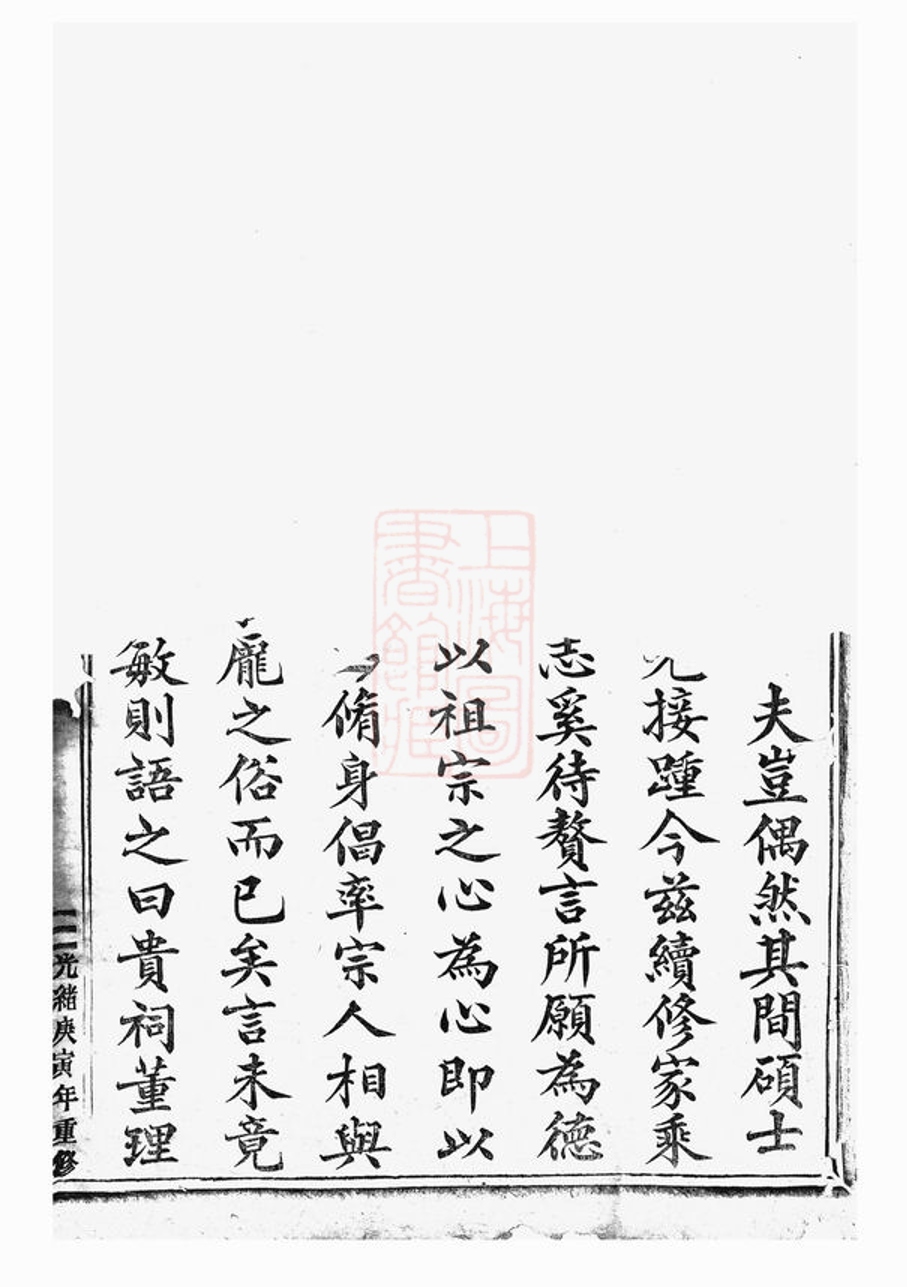 夫豈偶然其間碩士
接踵今茲續修家乘
志奚待贅言所願為德
以祖宗之心為心即以
脩身倡率宗人相與
龐之俗而已矣言未竟
敏則語之曰貴祠董理
二
光緒庚寅年重修
上海圖書館藏